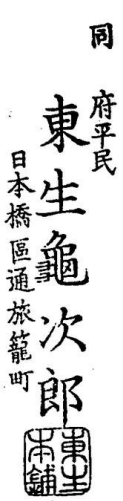 同
府平民
東生龜次郎
日本橋區通旅籠町
東生
本舗